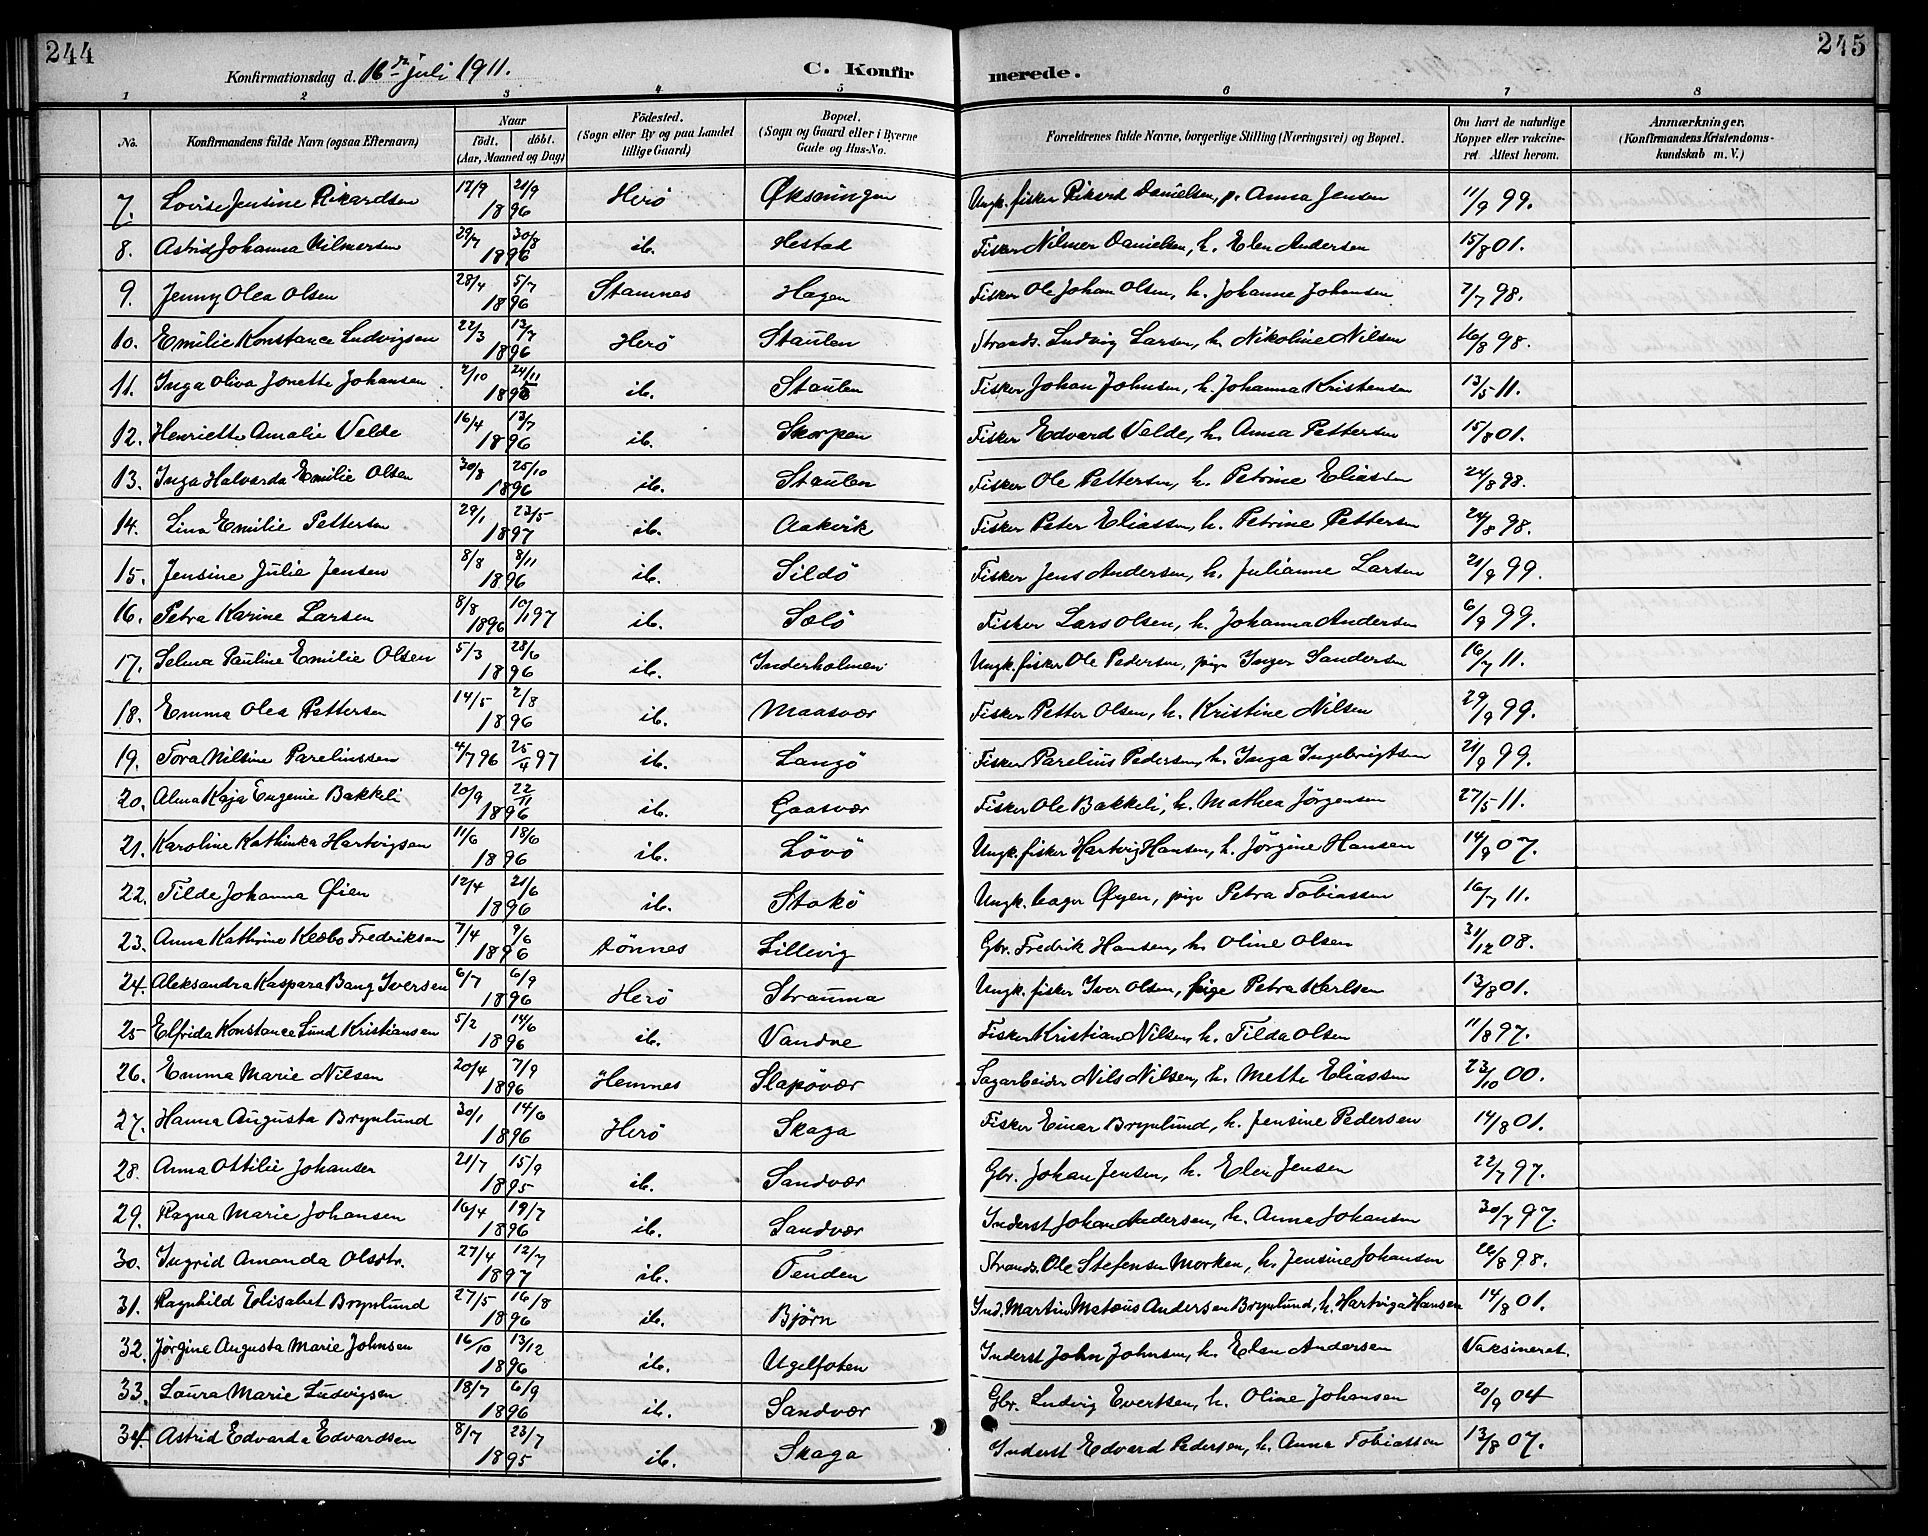 244
245
Konfirmationsdag d. 16de juli 1911.
C. Konfir
merede.
1 2 3 4 5 6 7 8
No. Konfirmandens fulde Navn (ogsaa Efternavn) Naar födt. döbt. (Aar, Maaned og Dag) Födested. (Sogn eller By og paa Landet tillige Gaard) Bopæl. (Sogn og Gaard eller i Byerne Gade og Hus-No. Forældrenes fulde Navne, borgerlige Stilling (Næringsvei) og Bopæl. Om havt de naturlige Kopper eller vakcineret. Attest herom. Anmærkninger, (Konfirmandens Kristendomskundskab m. V.)
7. Lovise Jensine Rikardsen 17/9 21/9 1896 Herö Øksningen Ungk. fisker Rikard Danielsen, p. Anna Jensen 11/9 99.
8. Astrid Johanna Hilmersen 29/7 30/8 1896 ib. Hestad Fisker Hilmer Danielsen, h. Elen Andersen 15/8 01.
9. Jenny Olea Olsen 28/4 5/7 1896 Stamnes Hagen Fisker Ole Johan Olsen, h. Johanne Johansen 7/7 98.
10. Emilie Konstance Ludvigsen 22/3 12/7 1896 Herö Staulen Strands. Ludvig Larsen, h. Nikoline Nilsen 16/8 98.
11. Inga Oliva Jonette Johansen 2/10 24/11 1895 ib. Staulen Fisker Johan Johnsen, h. Johanna Kristensen 13/5 11.
12. Henriette Amalie Velde 16/4 12/7 1896 ib. Skorpen Fisker Edvard Velde, h. Anna Pettersen 15/8 01.
13. Inga Halvarda Emilie Olsen 30/8 25/10 1896 ib. Staulen Fisker Ole Pettersen, h. Petrine Eliassen 24/8 98.
14. Lina Emilie Pettersen 29/1 23/5 1897 ib. Aakvik Fisker Peter Eliassen, h. Petrine Pettersen 24/8 98.
15. Jensine Julie Jensen 8/8 8/11 1896 ib. Sildö Fisker Jens Andersen, h. Julianne Larsen 21/9 99.
16. Petra Karine Larsen 8/8 1896 10/1 97 ib. Sælö Fisker Lars Olsen, h. Johanna Andersen 6/9 99.
17. Selma Pauline Emilie Olsen 5/3 28/6 1896 ib. Inderholmen Ungk. fisker Ole Pedersen, pige Inger Sandersen 16/7 11.
18. Emma Olea Pettersen 14/5 2/8 1896 ib. Maasvær Fisker Petter Olsen, h. Kristine Nilsen 29/9 99.
19. Tora Nilsine Pareliussen 4/7 96 25/4 97 ib. Langö Fisker Parelius Pedersen, h. Inga Ingebrigtsen 21/9 99.
20. Alma Kaja Eugenie Bakkeli 10/9 22/11 1896 ib. Gaasvær Fisker Ole Bakkeli, h. Mathea Jörgensen 27/5 11.
21. Karoline Kathinka Hartvigsen 11/6 18/6 1896 ib. Lövö Ungk. fisker Hartvig Hansen, h. Jörgine Hansen 14/9 07.
22. Tilde Johanna Øien 12/4 21/6 1896 ib. Stokö Ungk. bager Øyen, pige Petra Tobiassen 16/7 11.
23. Anna Kathrine Klæbo Fredriksen 7/4 9/6 1896 Dönnes Lillevig Gbr. Fredrik Hansen, h. Oline Olsen 31/12 08.
24. Aleksandra Kaspara Bang Iversen 6/7 6/9 1896 Herö Strauma Ungk. fisker Iver Olsen, pige Petra Karlsen 13/8 01.
25 Elfrida Konstance Lund Kristiansen 5/2 14/6 1896 ib. Vandve Fisker Kristian Nilsen, h. Tilda Olsen 11/8 97.
26. Emma Marie Nilsen 20/4 7/9 1896 Hemnes Slapövær Sagarbeider Nils Nilsen, h. Mette Eliassen 23/10 00.
27. Hanna Augusta Brynlund 30/1 14/6 1896 Herö Skaga Fisker Einar Brynlund, h. Jensine Pedersen 14/8 01.
28. Anna Ottilie Johansen 21/7 15/9 1895 ib. Sandvær Gbr. Johan Jensen, h. Elen Jensen 22/7 97.
29. Ragna Marie Johansen 16/4 19/7 1896 ib. Sandvær Inderst Johan Andersen, h. Anna Johansen 30/7 97.
30. Ingrid Amanda Olsdtr. 27/4 12/7 1897 ib. Tenden Strands. Ole Stefensen Morken, h. Jensine Johansen 26/8 98.
31. Ragnhild Elisabet Brynlund 27/5 16/8 1896 ib. Björn Ind. Martin Mateus Andersen Brynlund, h. Hartviga Hansen 14/8 01.
32. Jörgine Augusta Marie Johnsen 16/10 13/12 1896 ib. Ugelfoten Inderst John Johnsen, h. Elen Andersen Vaksineret.
33. Laura Marie Ludvigsen 18/7 6/9 1896 ib. Sandvær Gbr. Ludvig Evertsen, h. Oline Johansen 20/9 04
34. Astrid Edvarda Edvardsen 8/7 23/7 1895 ib. Skaga Inderst Edvard Pedersen, h. Anna Tobiassen 13/8 07.